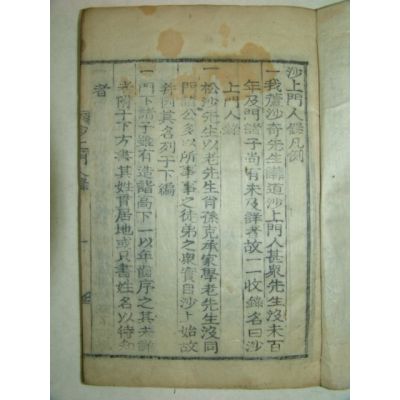 沙上門人錄凡例
一我蘆沙奇先生講道沙上門人甚衆先生沒未百
年及門諸子尚有未及詳者故一一收錄名曰沙
上門人錄
一松沙先生以老先生肖孫克承家學老先生沒同
門諸公多以所事事之徒弟之興實自沙上始故
幷列其名列于下編
一門下諸子雖有造詣高下一以年齒序之其未詳
者附于下方書其姓貫居地或只書姓名以待知
者
沙上門人錄
一